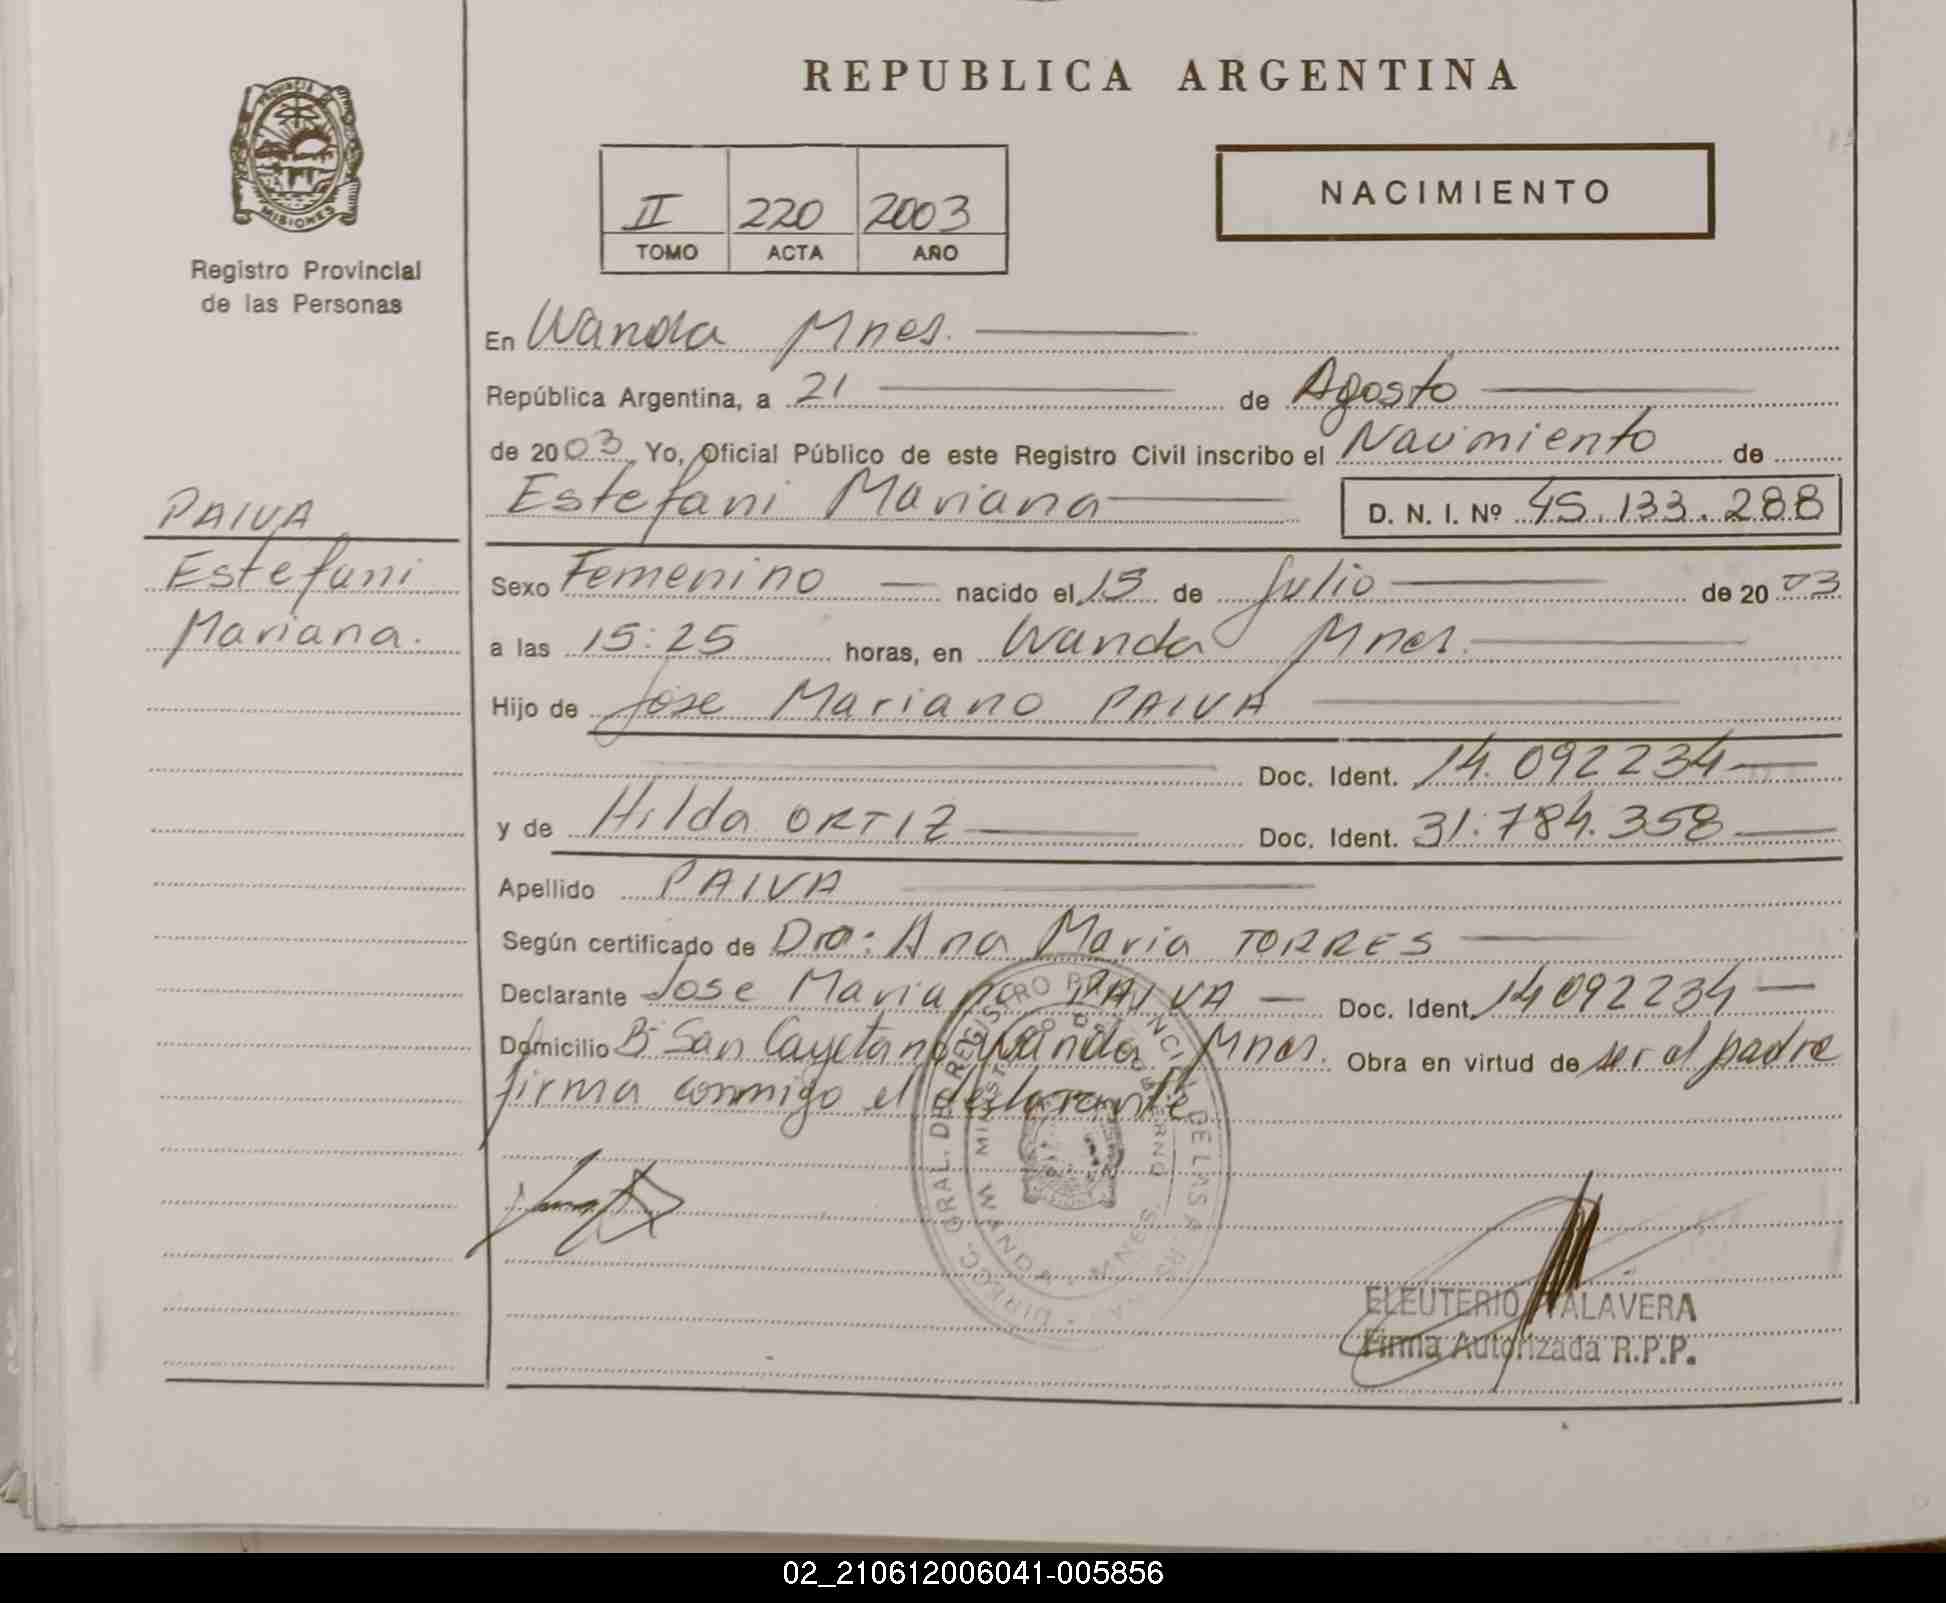 REPUBLICA ARGENTINA
PROVINCIA DE
MISIONES
Registro Provincial
de las Personas
II 220 2003
TOMO ACTA AÑO
NACIMIENTO
En Wanda Mnes.
República Argentina, a 21 de Agosto
de 2003 Yo, Oficial Público de este Registro Civil inscribo el Nacimiento de
Estefani Mariana D. N. I. Nº 45.133.288
PAIVA
Estefani
Mariana.
Sexo Femenino nacido el 15 de Julio de 2003
a las 15:25 horas, en Wanda Mnes.
Hijo de Jose Mariano PAIVA
Doc. Ident. 14.092234
y de Hilda ORTIZ Doc. Ident. 31.784.358
Apellido PAIVA
Según certificado de Dra: Ana Maria TORRES
Declarante Jose Mariano PAIVA Doc. Ident. 14092234
Domicilio Bº San Cayetano Wanda Mnes. Obra en virtud de ser el padre
firma conmigo el declarante
DIRECC. GRAL. DEL REGISTRO PROVINCIAL DE LAS
MINISTERIO DE GOBIERNO
WANDA - MNES.
ELEUTERIO TALAVERA
Firma Autorizada R.P.P.
02_210612006041-005856